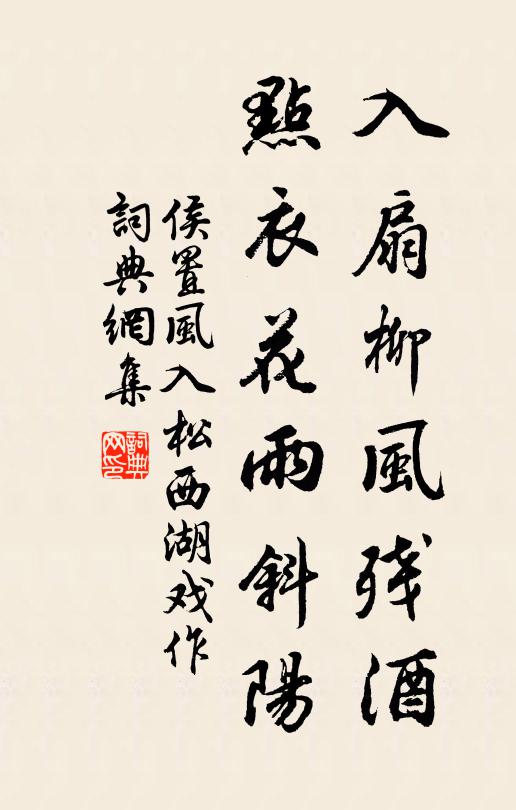 入扇柳風残酒
點衣花雨斜陽
侯置風入松西湖戏作
詞典網集
詞典網印